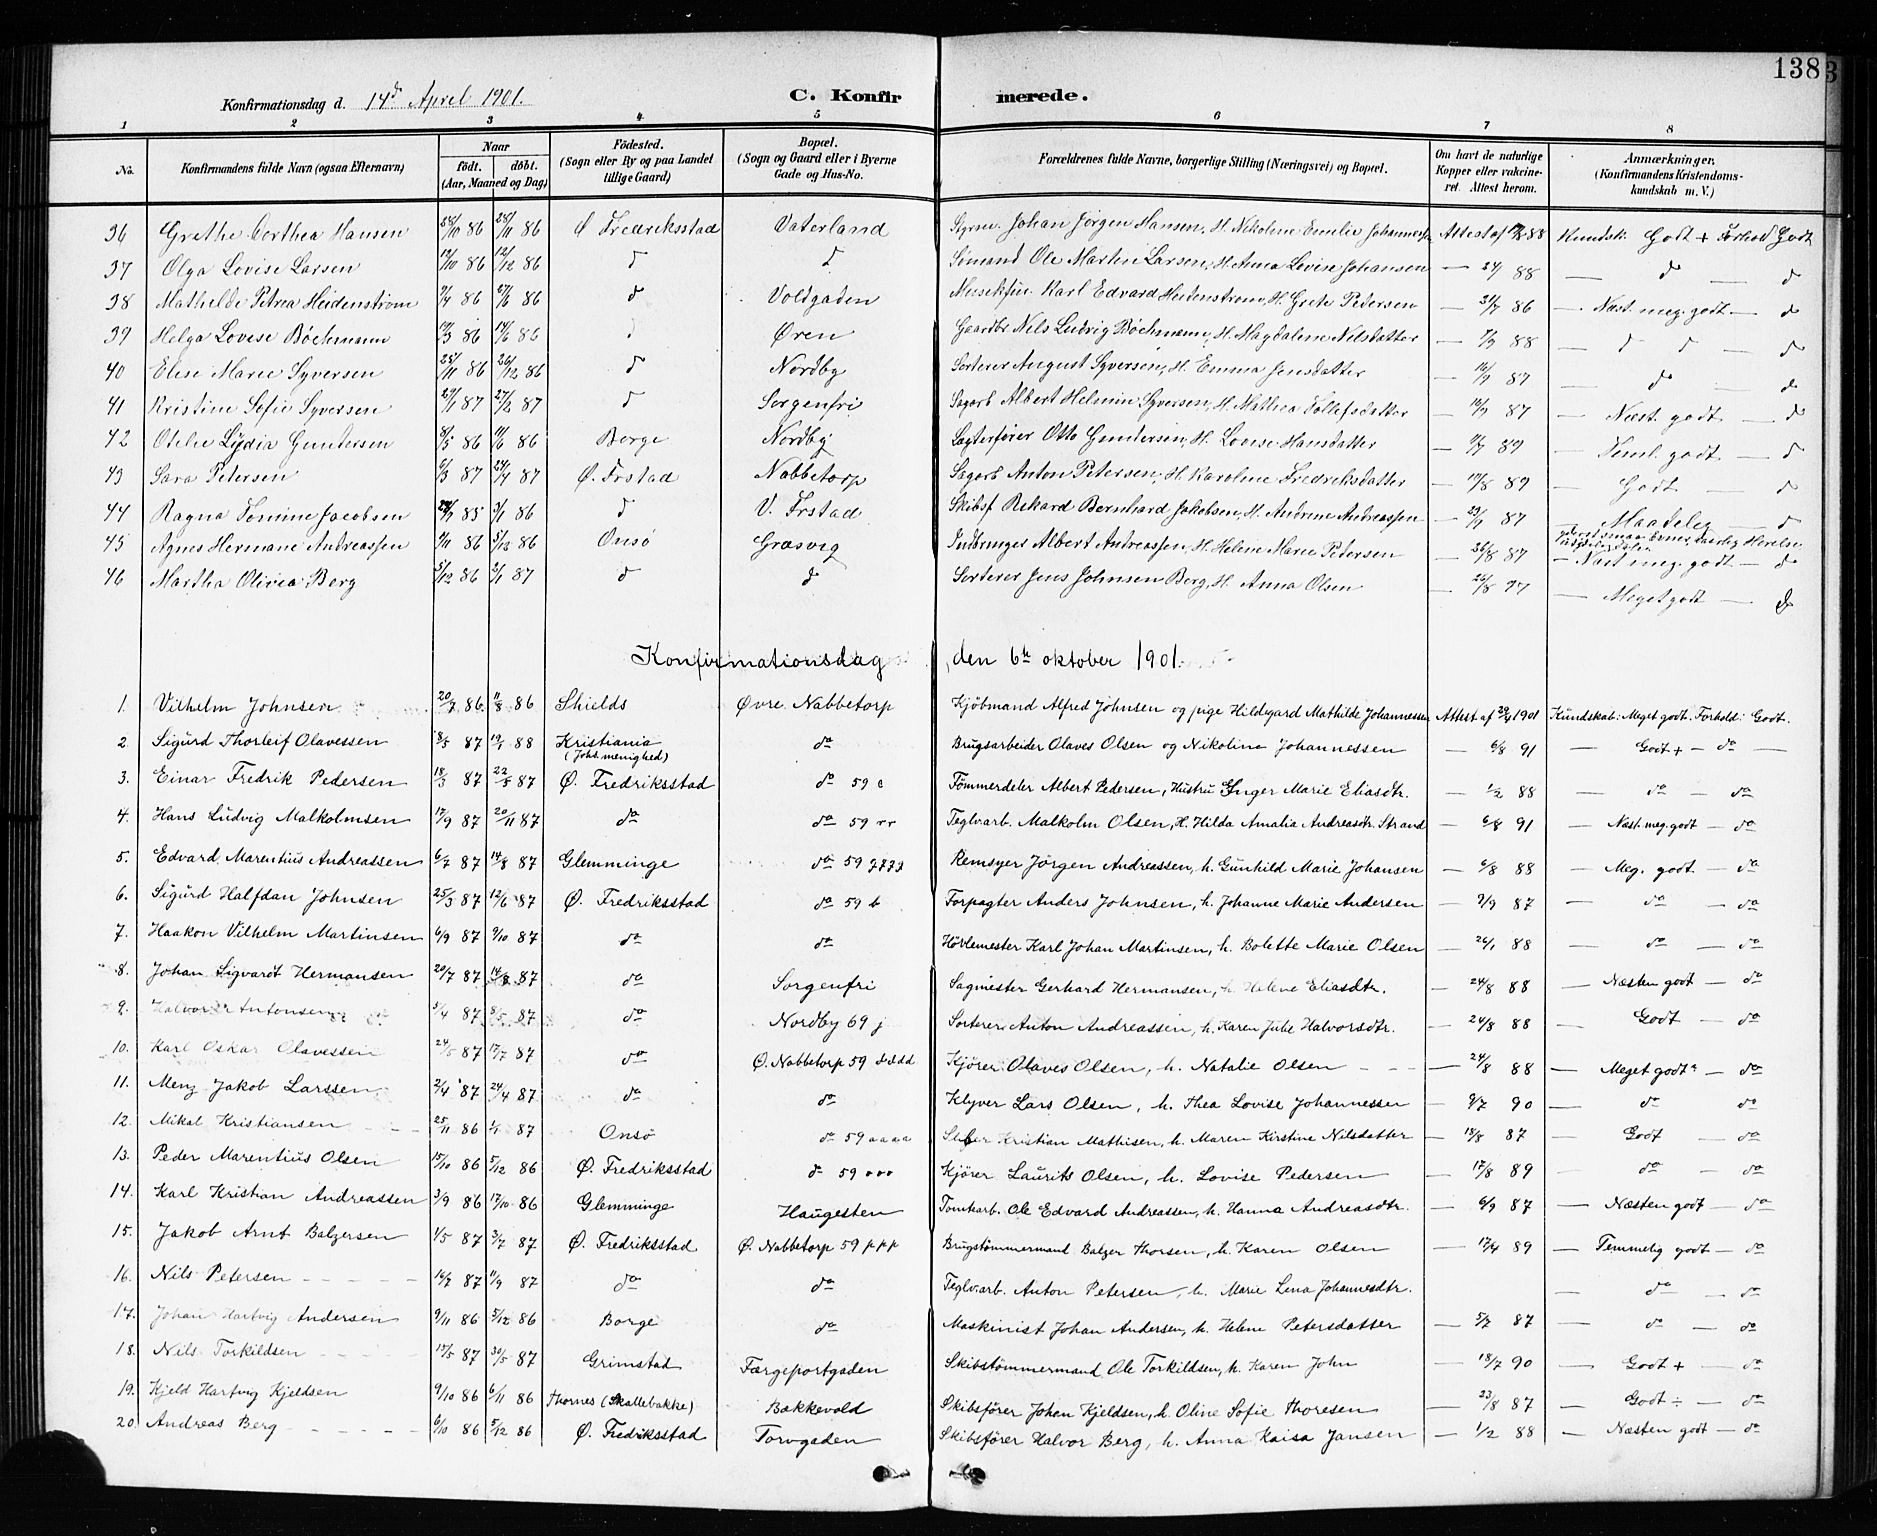 138
Konfirmationsdag d. 14de April 1901. C. Konfirmerede.
1 2 3 4 5 6 7 8
No. Konfirmandens fulde Navn (ogsaa Efternavn) Naar født. døbt. (Aar, Maaned og Dag) Fødested. (Sogn eller By og paa Landet tillige Gaard) Bopæl. (Sogn og Gaard eller i Byerne Gade og Hus-No. Forældrenes fulde Navne, borgerlige Stilling (Næringsvei) og Bopæl. Om havt de naturlige Kopper eller vakcineret. Attest herom. Anmærkninger. (Konfirmandens Kristendomskundskab m. V.)
36 Grethe Dorthea Hansen 28/10 86 28/11 86 Ø Fredriksstad Vaterland Styrm. Johan Jørgen Hansen, H. Nikoline Emilie Attest af 88 Kundsk: Godt + Forhold Godt
37 Olga Lovise Larsen 12/10 86 12/12 86 d d Sømand Ole Martin Larsen, H. Anna Lovise Johansen — 88 — d d
38 Mathilde Petrea Heidenstrøm 7/4 86 27/6 86 d Voldgaden Karl Edvard Heidenstrøm, H. Grete Petersen — 31/7 86 — Næst. meg. godt — d
39 Helga Lovise Böchmann 19/3 86 14/6 86 Øren Gaardbr Nils Ludvig Böchmann, H. Magdalene Nilsdatter — 7/9 88 — d d — d
40 Elise Marie Syversen 25/11 86 26/12 86 d Nordby Sorterer August Syversen, H. Emma Jensdatter — 16/9 87 — d — d
41 Kristine Sofie Syversen 29/1 87 27/2 87 d Sorgenfri Sagarb Albert Helmin Syversen, H. Mathea Tollefsdatter — 16/9 87 — Næst. godt — d
42 Otelie Lydia Gundersen 8/5 86 11/6 86 Borge Nordby Otto Gundersen, H. Lovise Hansdatter — 89 — Teml. godt — d
43 Sara Petersen 6/3 87 24/4 87 Ø. Frstad Nabbetorp Sagarb Anton Petersen, H. Karoline Fredriksdatter — 17/8 89 — Godt — d
44 Ragna Tomine Jacobsen 85 3/1 86 d V. Frstad Skibsf Rekard Bernhard Jakobsen, H. Andrine Andreassen — 87 — Maadelig — d
45 Agnes Hermane Andreassen 9/11 86 5/12 86 Onsø Græsvig Indbringer Albert Andreassen, H. Helene Marie Petersen — 26/8 87 — Næst meg. godt — d
46 Martha Olivia Berg 5/12 86 2/1 87 d d Sorterer Jens Johnsen Berg, H. Anna Olsen — 26/8 97 — Meget godt — d
Konfirmationsdag den 6te oktober 1901.
1. Vilhelm Johnsen 20/7 86. 11/8 86 Shields Øvre. Nabbetorp Kjøbmand Alfred Johnsen og pige Hildegard Mathilde Johannessen Attest af 29/4 1901 Kundskab: Meget godt. Forhold: Godt.
2. Sigurd Thorleif Olavessen 18/5 87 19/2 88 Kristiania (Johs. menighed) do Brugsarbeider Olaves Olsen og Nikoline Johannessen — 6/8 91 — Godt + — do —
3. Einar Fredrik Pedersen 18/3 87 22/5 87 Ø. Fredriksstad do 59 c Tømmerdeler Albert Pedersen, Hustru Inger Marie Eliasdtr. — 1/2 88 — do — do
4. Hans Ludvig Malkolmsen 17/9 87 20/11 87 do do 59 rr Teglvarb. Malkolm Olsen, H. Hilda Amalia Andreasdtr. Strand — 6/8 91 — Næst. meg. godt — do
5. Edvard Marentius Andreassen 6/7 87 14/8 87 Glemminge do 59 Remsyer Jørgen Andreassen, h. Gunhild Marie Johansen — 6/8 88 — Meg. godt. — do
6. Sigurd Halfdan Johnsen 25/3 87 12/6 87 Ø. Fredriksstad do 59 b Forpagter Anders Johnsen, h. Johanne Marie Andersen — 9/9 87 — do — do
7. Haakon Vilhelm Martinsen 6/9 87 9/10 87 do do Høvlemester Karl Johan Martinsen, h. Bolette Marie Olsen — 26/1 88 — do — do
8. Johan Sigvardt Hermansen 20/7 87 14/8 87 do Sorgenfri Sagmester Gerhard Hermansen, h. Helene Eliasdtr. — 24/8 88 — Næsten godt — do
9. Antonsen 5/4 87 8/5 87 do Nordby 69 j Sorterer Anton Andreassen, h. Karen Julie Halvorsdtr. — 24/8 88 — Godt — do
10. Karl Oskar Olavessen 24/5 87 17/7 87 do Ø. Nabbetorp 59 dddd Kjører Olaves Olsen, h. Natalie Olsen — 24/8 88 — Meget godt — do
11. Menz Jakob Larssen 2/4 87 24/4 87 do do Klyver Lars Olsen, h. Thea Lovise Johannessen — 9/7 90 — do do
12. Mikal Kristiansen 25/11 86 1/1 87 Onsø do 59 aaaa Kristian Mathisen, h. Maren Kirstine Nilsdatter — 18/8 87 — Godt — do
13. Peder Marentius Olsen 15/10 86 5/12 86 Ø. Fredriksstad do 59 ooo Kjører Laurits Olsen, h. Lovise Pedersen — 17/8 89 — do — do
14. Karl Kristian Andreassen 3/9 86 17/10 86 Glemminge Haugesten Tomtarb. Ole Edvard Andreassen, h. Hanna Andreasdtr. — 6/9 87 — Næsten godt — do
15. Jakob Arnt Balzersen 1/5 87 3/7 87 Ø. Fredriksstad Ø. Nabbetorp 59 ppp Brugstømmermand Balzer Thorsen, h. Karen Olsen — 17/4 89 — Temmelig godt — do
16. Nils Petersen 87 11/9 87 do do Teglv.arb. Anton Petersen, h. Marie Lena Johannesdtr. — do — do
17. Johan Hartvig Andersen 9/11 86 5/12 86 Borge do Maskinist Johan Andersen, h. Helene Petersdatter — 5/7 87 — do — do
18. Nils Torkildsen 17/5 87 30/5 87 Grimstad Færgeportgaden Skibstømmermand Ole Torkildsen, h. Karen John — 18/7 90 — Godt + — do
19. Kjeld Hartvig Kjeldsen 9/10 86 6/11 86 Thornes (Skallebakke) Bakkevold Skibsfører Johan Kjeldsen, h. Oline Sofie Thoresen — 23/8 87 — Godt ÷ — do
20. Andreas Berg 6/10 86 5/12 86 Ø. Fredriksstad Torvgaden Skibsfører Halvor Berg, h. Anna Kaisa Jansen — 1/2 88 — Næsten godt — do